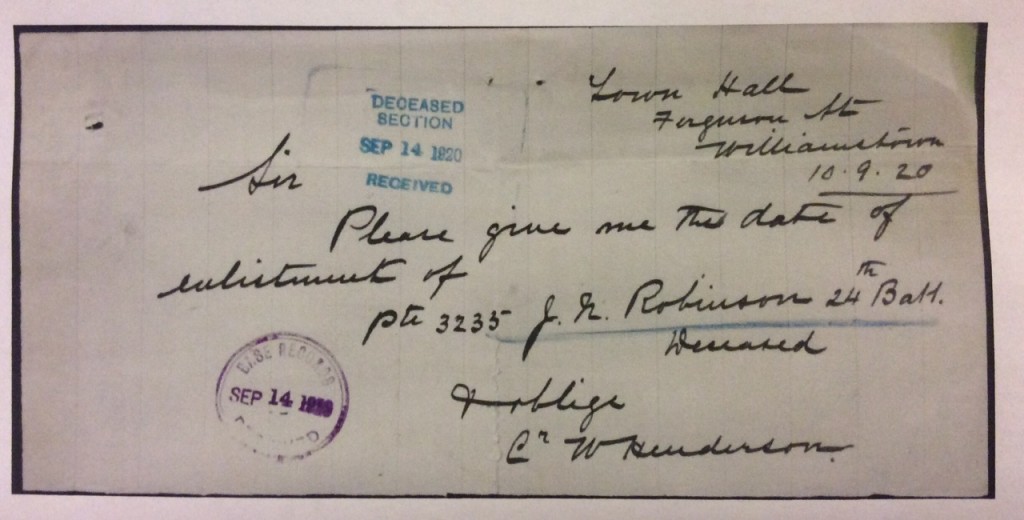 Town Hall
Ferguson St
Williamstown
10.9.20
DECEASED
SECTION
SEP 14 1920
RECEIVED
Sir
Please give me the date of
enlistment of
Pte 3235 J. N. Robinson 24th Batt.
Deceased
& oblige
Cr W Henderson
BASE RECORDS
SEP 14 1920
RECEIVED